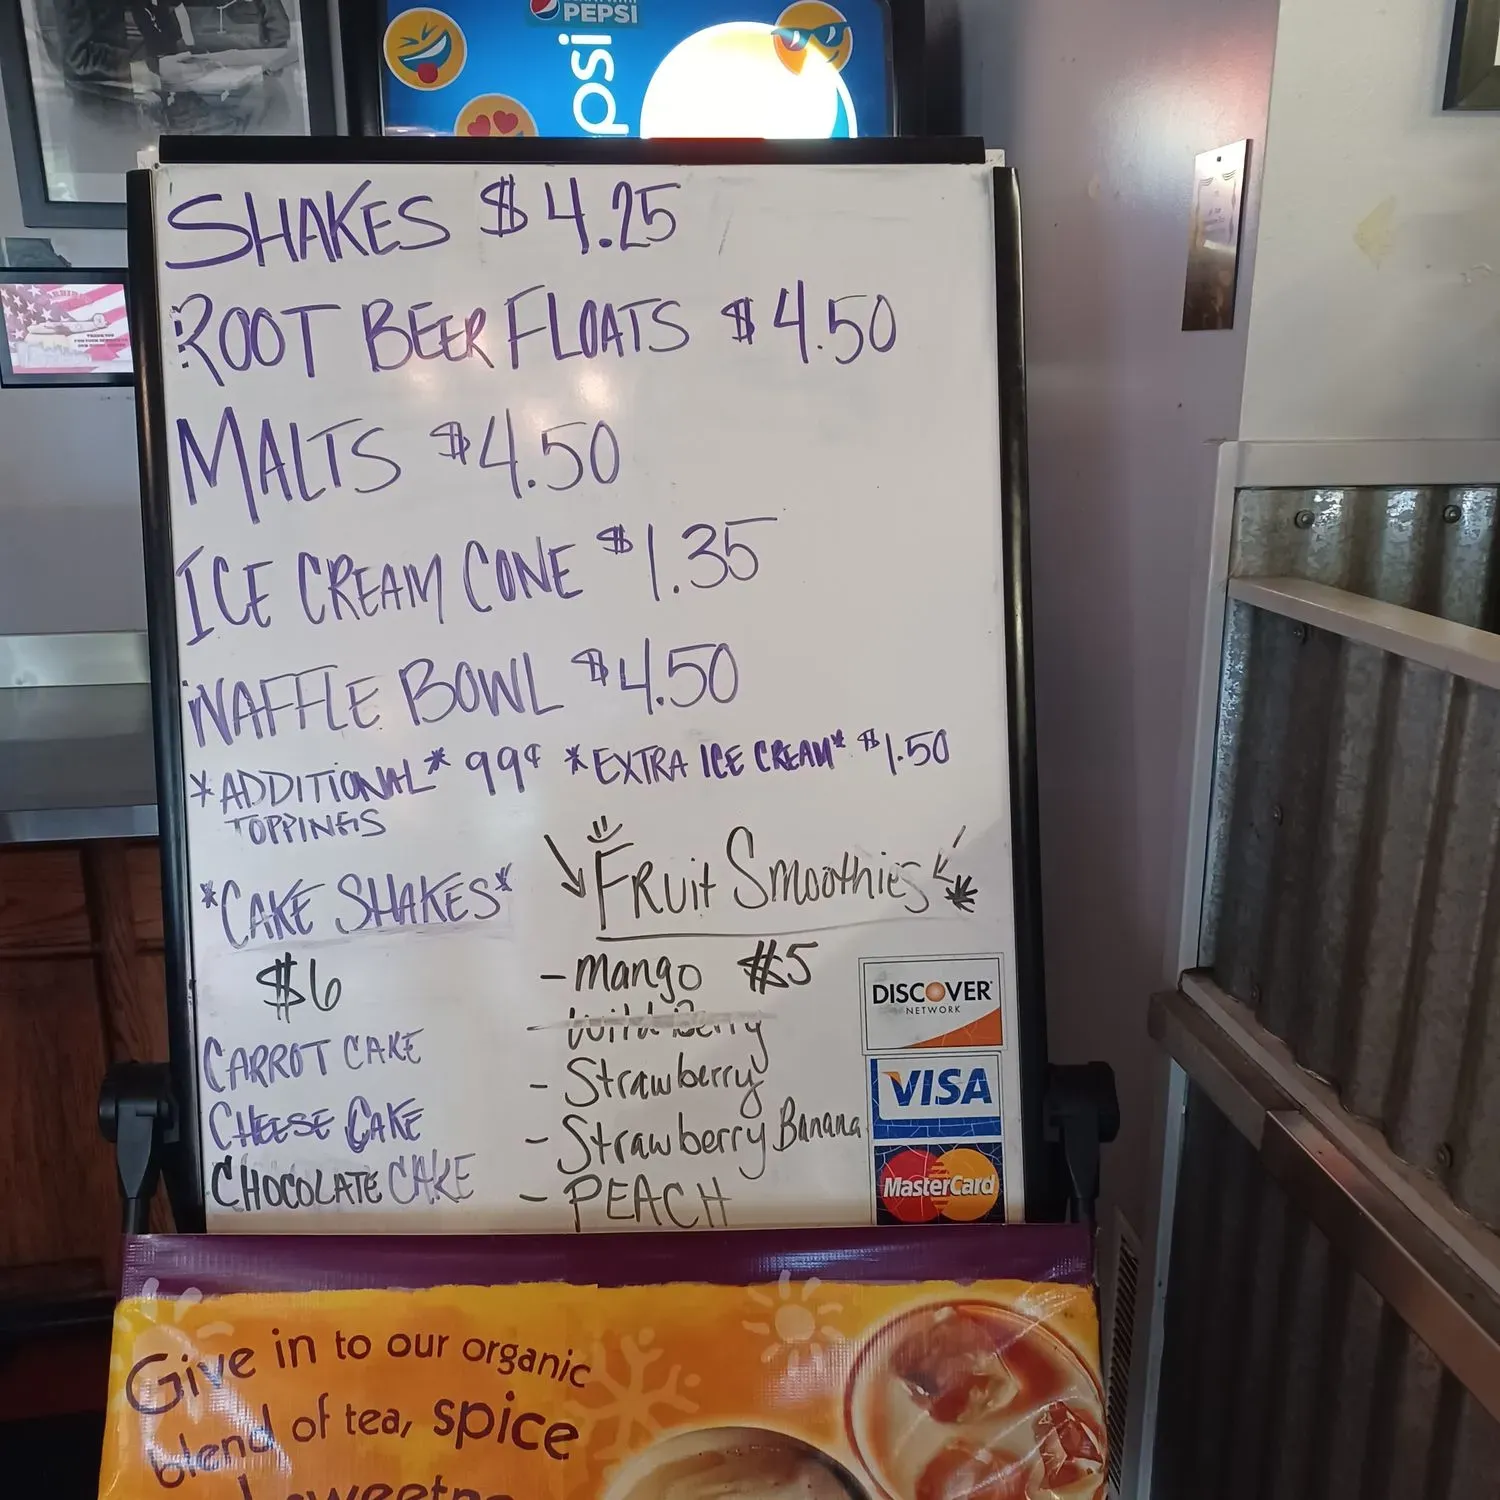 PEPSI
psi
SHAKES $4.25
ROOT BEER FLOATS $4.50
MALTS $4.50
ICE CREAM CONE $1.35
WAFFLE BOWL $4.50
*ADDITIONAL* 99¢ *EXTRA ICE CREAM* $1.50
TOPPINGS
*CAKE SHAKES*
$6
CARROT CAKE
CHEESE CAKE
CHOCOLATE CAKE
FRuit Smoothies
- mango $5
- Wild Berry
- Strawberry
- Strawberry Banana
- PEACH
DISCOVER
NETWORK
VISA
MasterCard
Give in to our organic
blend of tea, spice